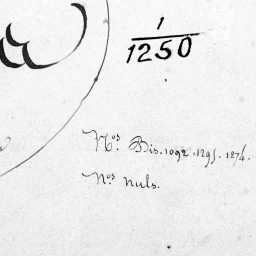 1
1250
Nos. Bis. 1092. 1295. 1274.
Nos. nuls.